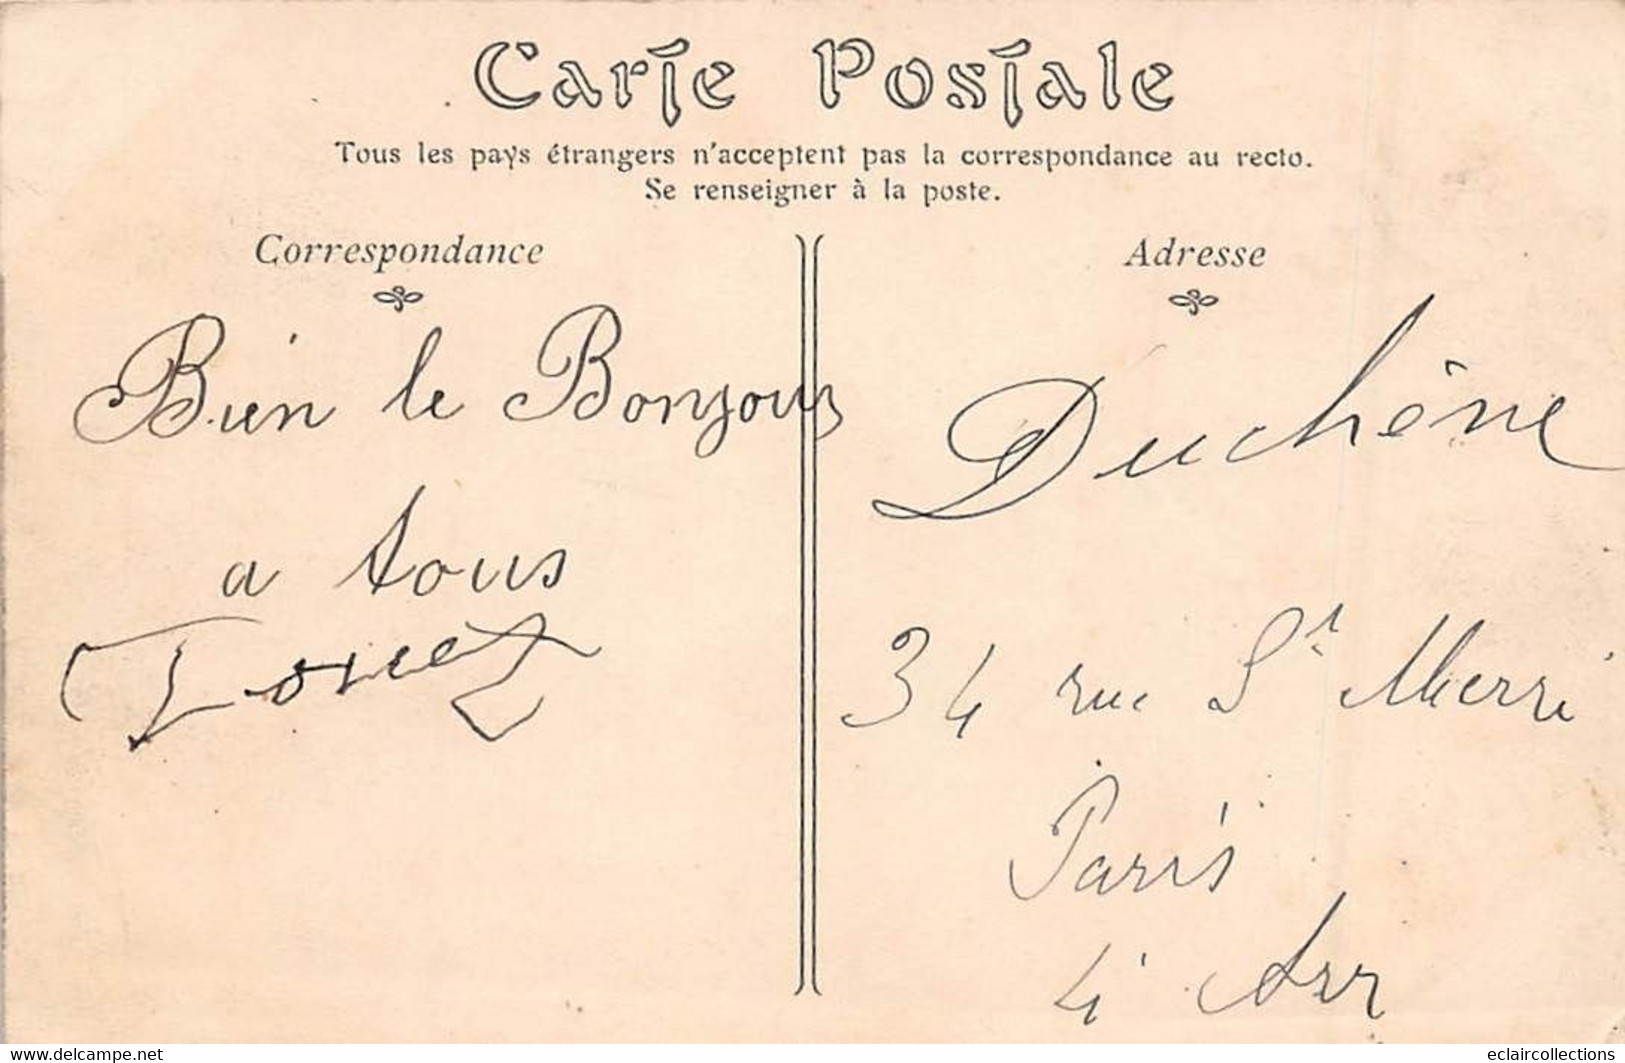 Carte Postale
Tous les pays étrangers n'acceptent pas la correspondance au recto.
Se renseigner à la poste.
Correspondance
Bien le Bonjour
a tous
Adresse
Duchêne
34 rue St Merri
Paris
4e Arr
www.delcampe.net
eclaircollections